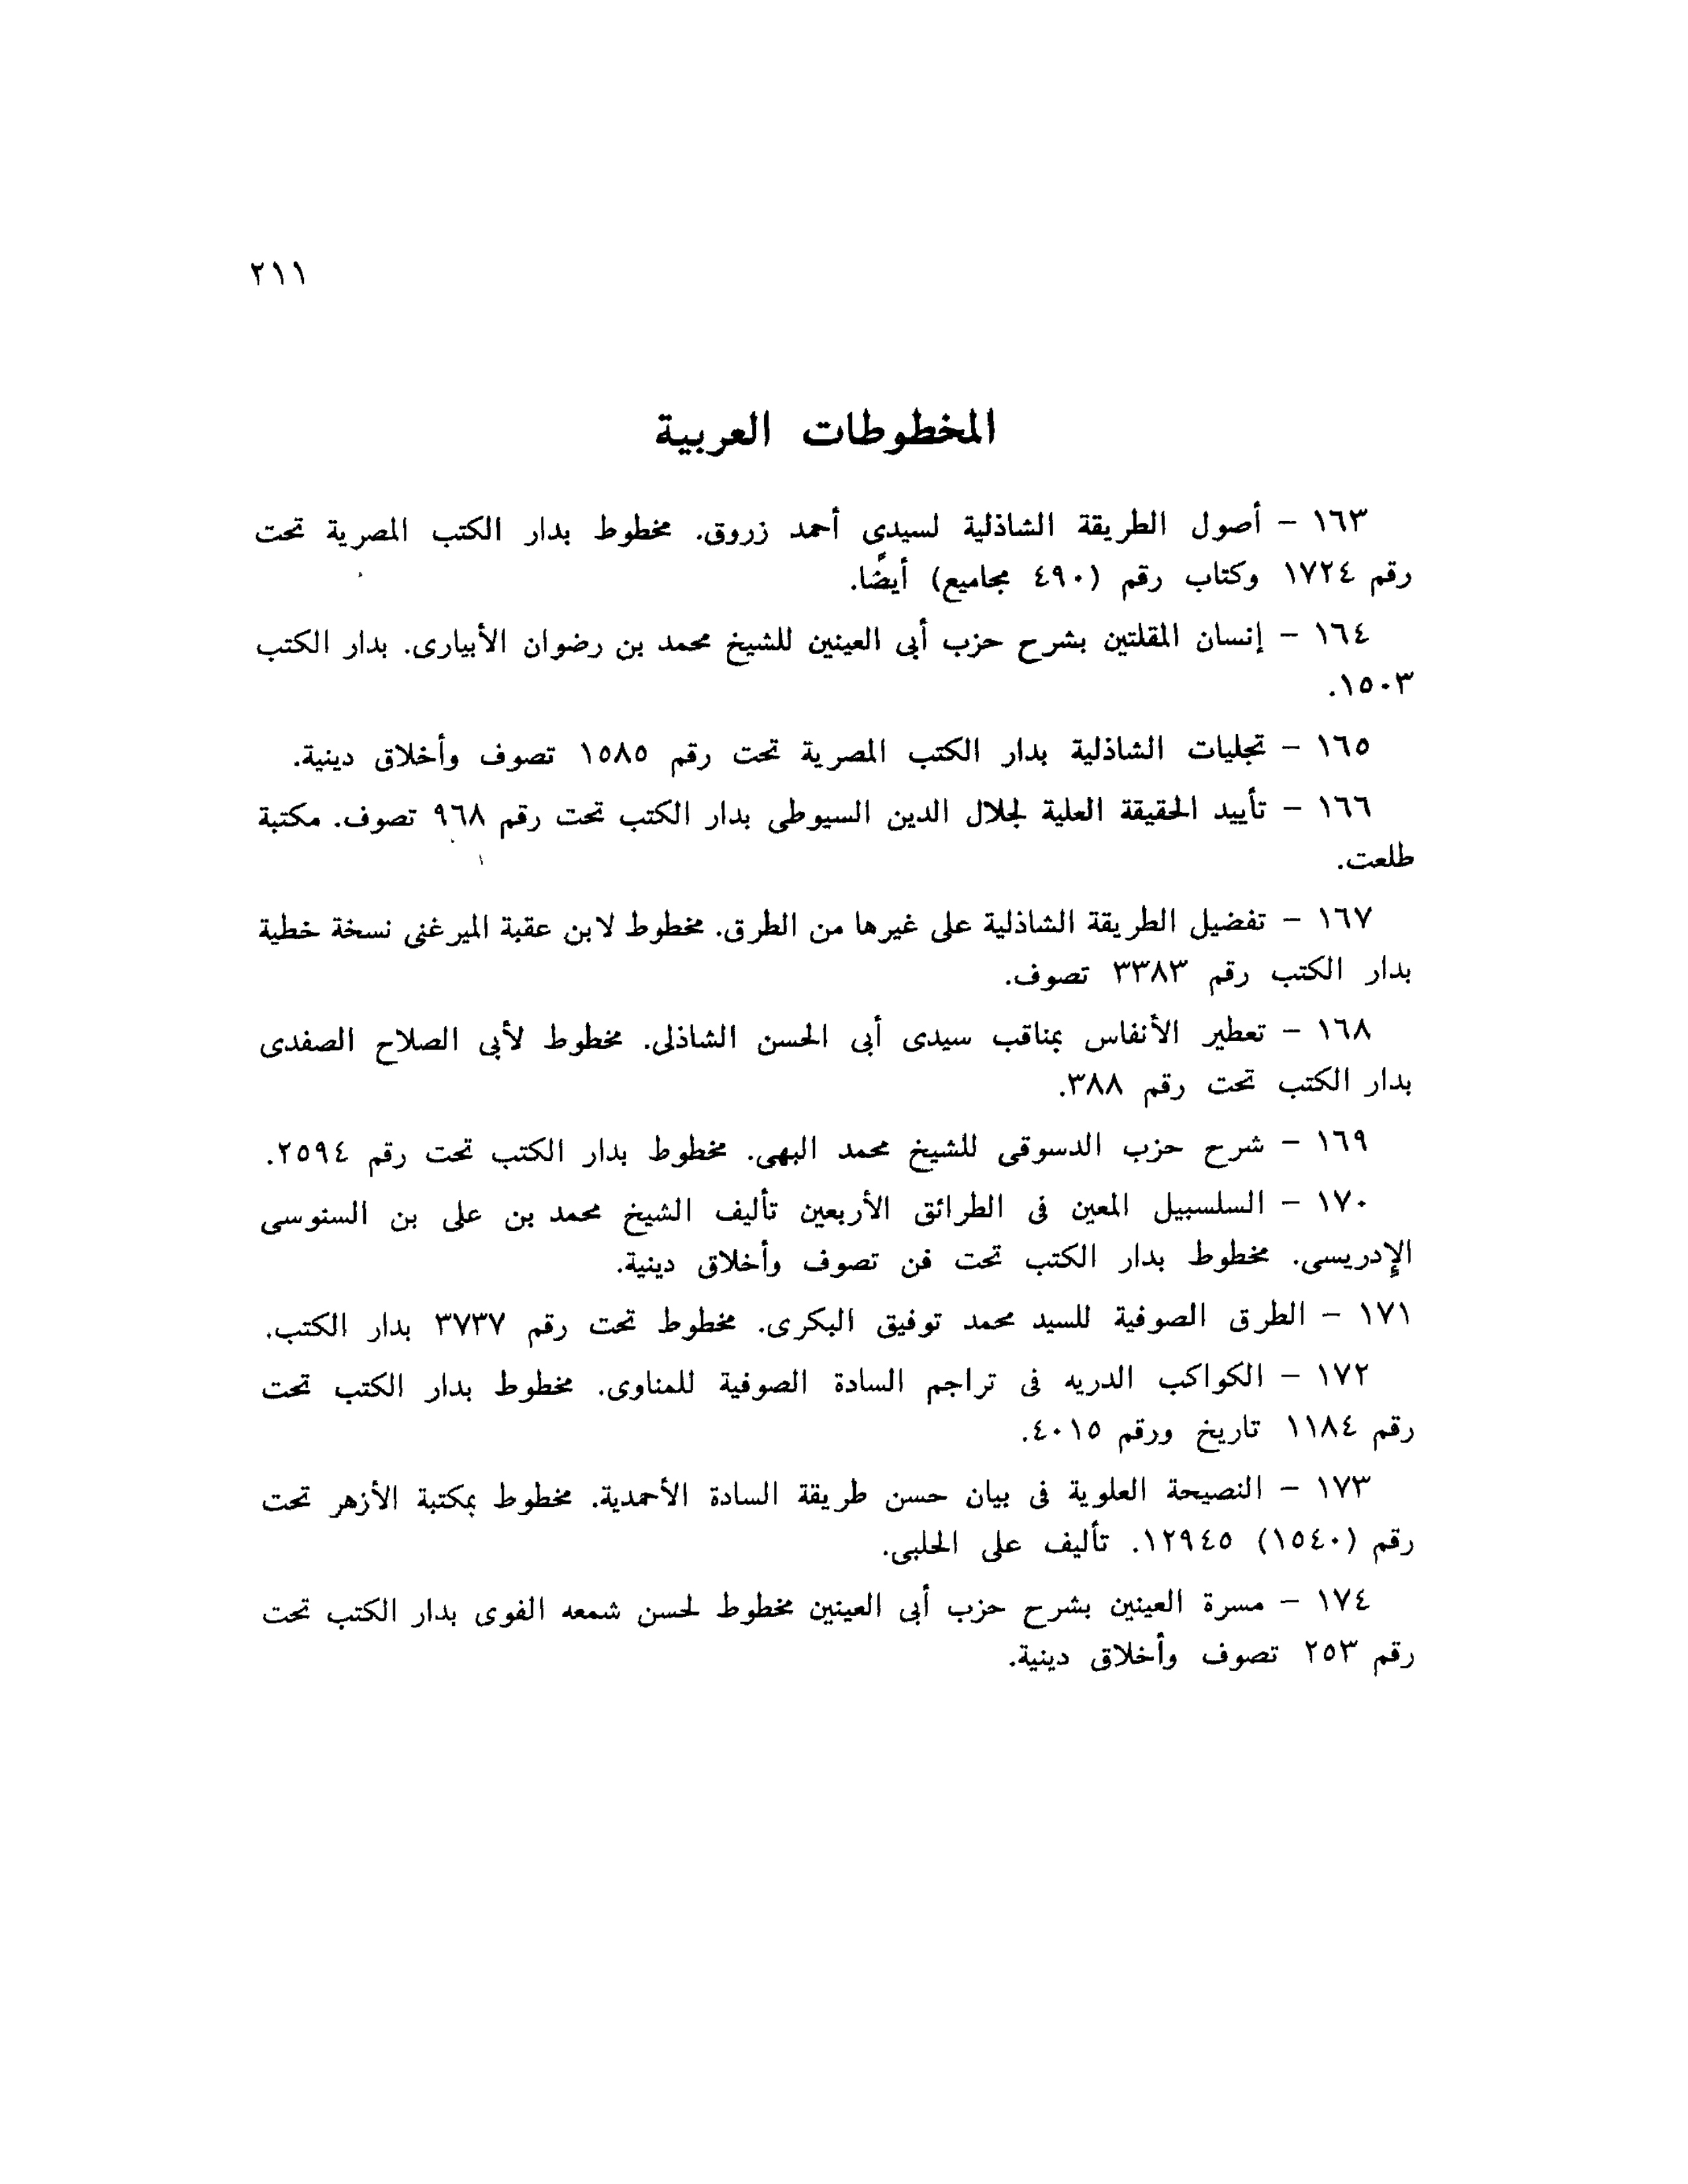 ٢١١
المخطوطات العربية
١٦٣ – أصول الطريقة الشاذلية لسيدى أحمد زروق. مخطوط بدار الكتب المصرية تحت
رقم ١٧٢٤ وكتاب رقم (٤٩٠ مجاميع) أيضًا.
١٦٤ – إنسان المقلتين بشرح حزب أبى العينين للشيخ محمد بن رضوان الأبيارى. بدار الكتب
١٥٠٣.
١٦٥ – تجليات الشاذلية بدار الكتب المصرية تحت رقم ١٥٨٥ تصوف وأخلاق دينية.
١٦٦ – تأييد الحقيقة العلية لجلال الدين السيوطى بدار الكتب تحت رقم ٩٦٨ تصوف. مكتبة
طلعت.
١٦٧ – تفضيل الطريقة الشاذلية على غيرها من الطرق. مخطوط لابن عقبة الميرغنى نسخة خطية
بدار الكتب رقم ٣٣٨٣ تصوف.
١٦٨ – تعطير الأنفاس بمناقب سيدى أبى الحسن الشاذلى. مخطوط لأبى الصلاح الصفدى
بدار الكتب تحت رقم ٣٨٨.
١٦٩ – شرح حزب الدسوقى للشيخ محمد البهى. مخطوط بدار الكتب تحت رقم ٢٥٩٤.
١٧٠ – السلسبيل المعين فى الطرائق الأربعين تأليف الشيخ محمد بن على بن السنوسى
الإدريسى. مخطوط بدار الكتب تحت فن تصوف وأخلاق دينية.
١٧١ – الطرق الصوفية للسيد محمد توفيق البكرى. مخطوط تحت رقم ٣٧٣٧ بدار الكتب.
١٧٢ – الكواكب الدريه فى تراجم السادة الصوفية للمناوى. مخطوط بدار الكتب تحت
رقم ١١٨٤ تاريخ ورقم ٤٠١٥.
١٧٣ – النصيحة العلوية فى بيان حسن طريقة السادة الأحمدية. مخطوط بمكتبة الأزهر تحت
رقم (١٥٤٠) ١٢٩٤٥. تأليف على الحلبى.
١٧٤ – مسرة العينين بشرح حزب أبى العينين مخطوط لحسن شمعه الفوى بدار الكتب تحت
رقم ٢٥٣ تصوف وأخلاق دينية.